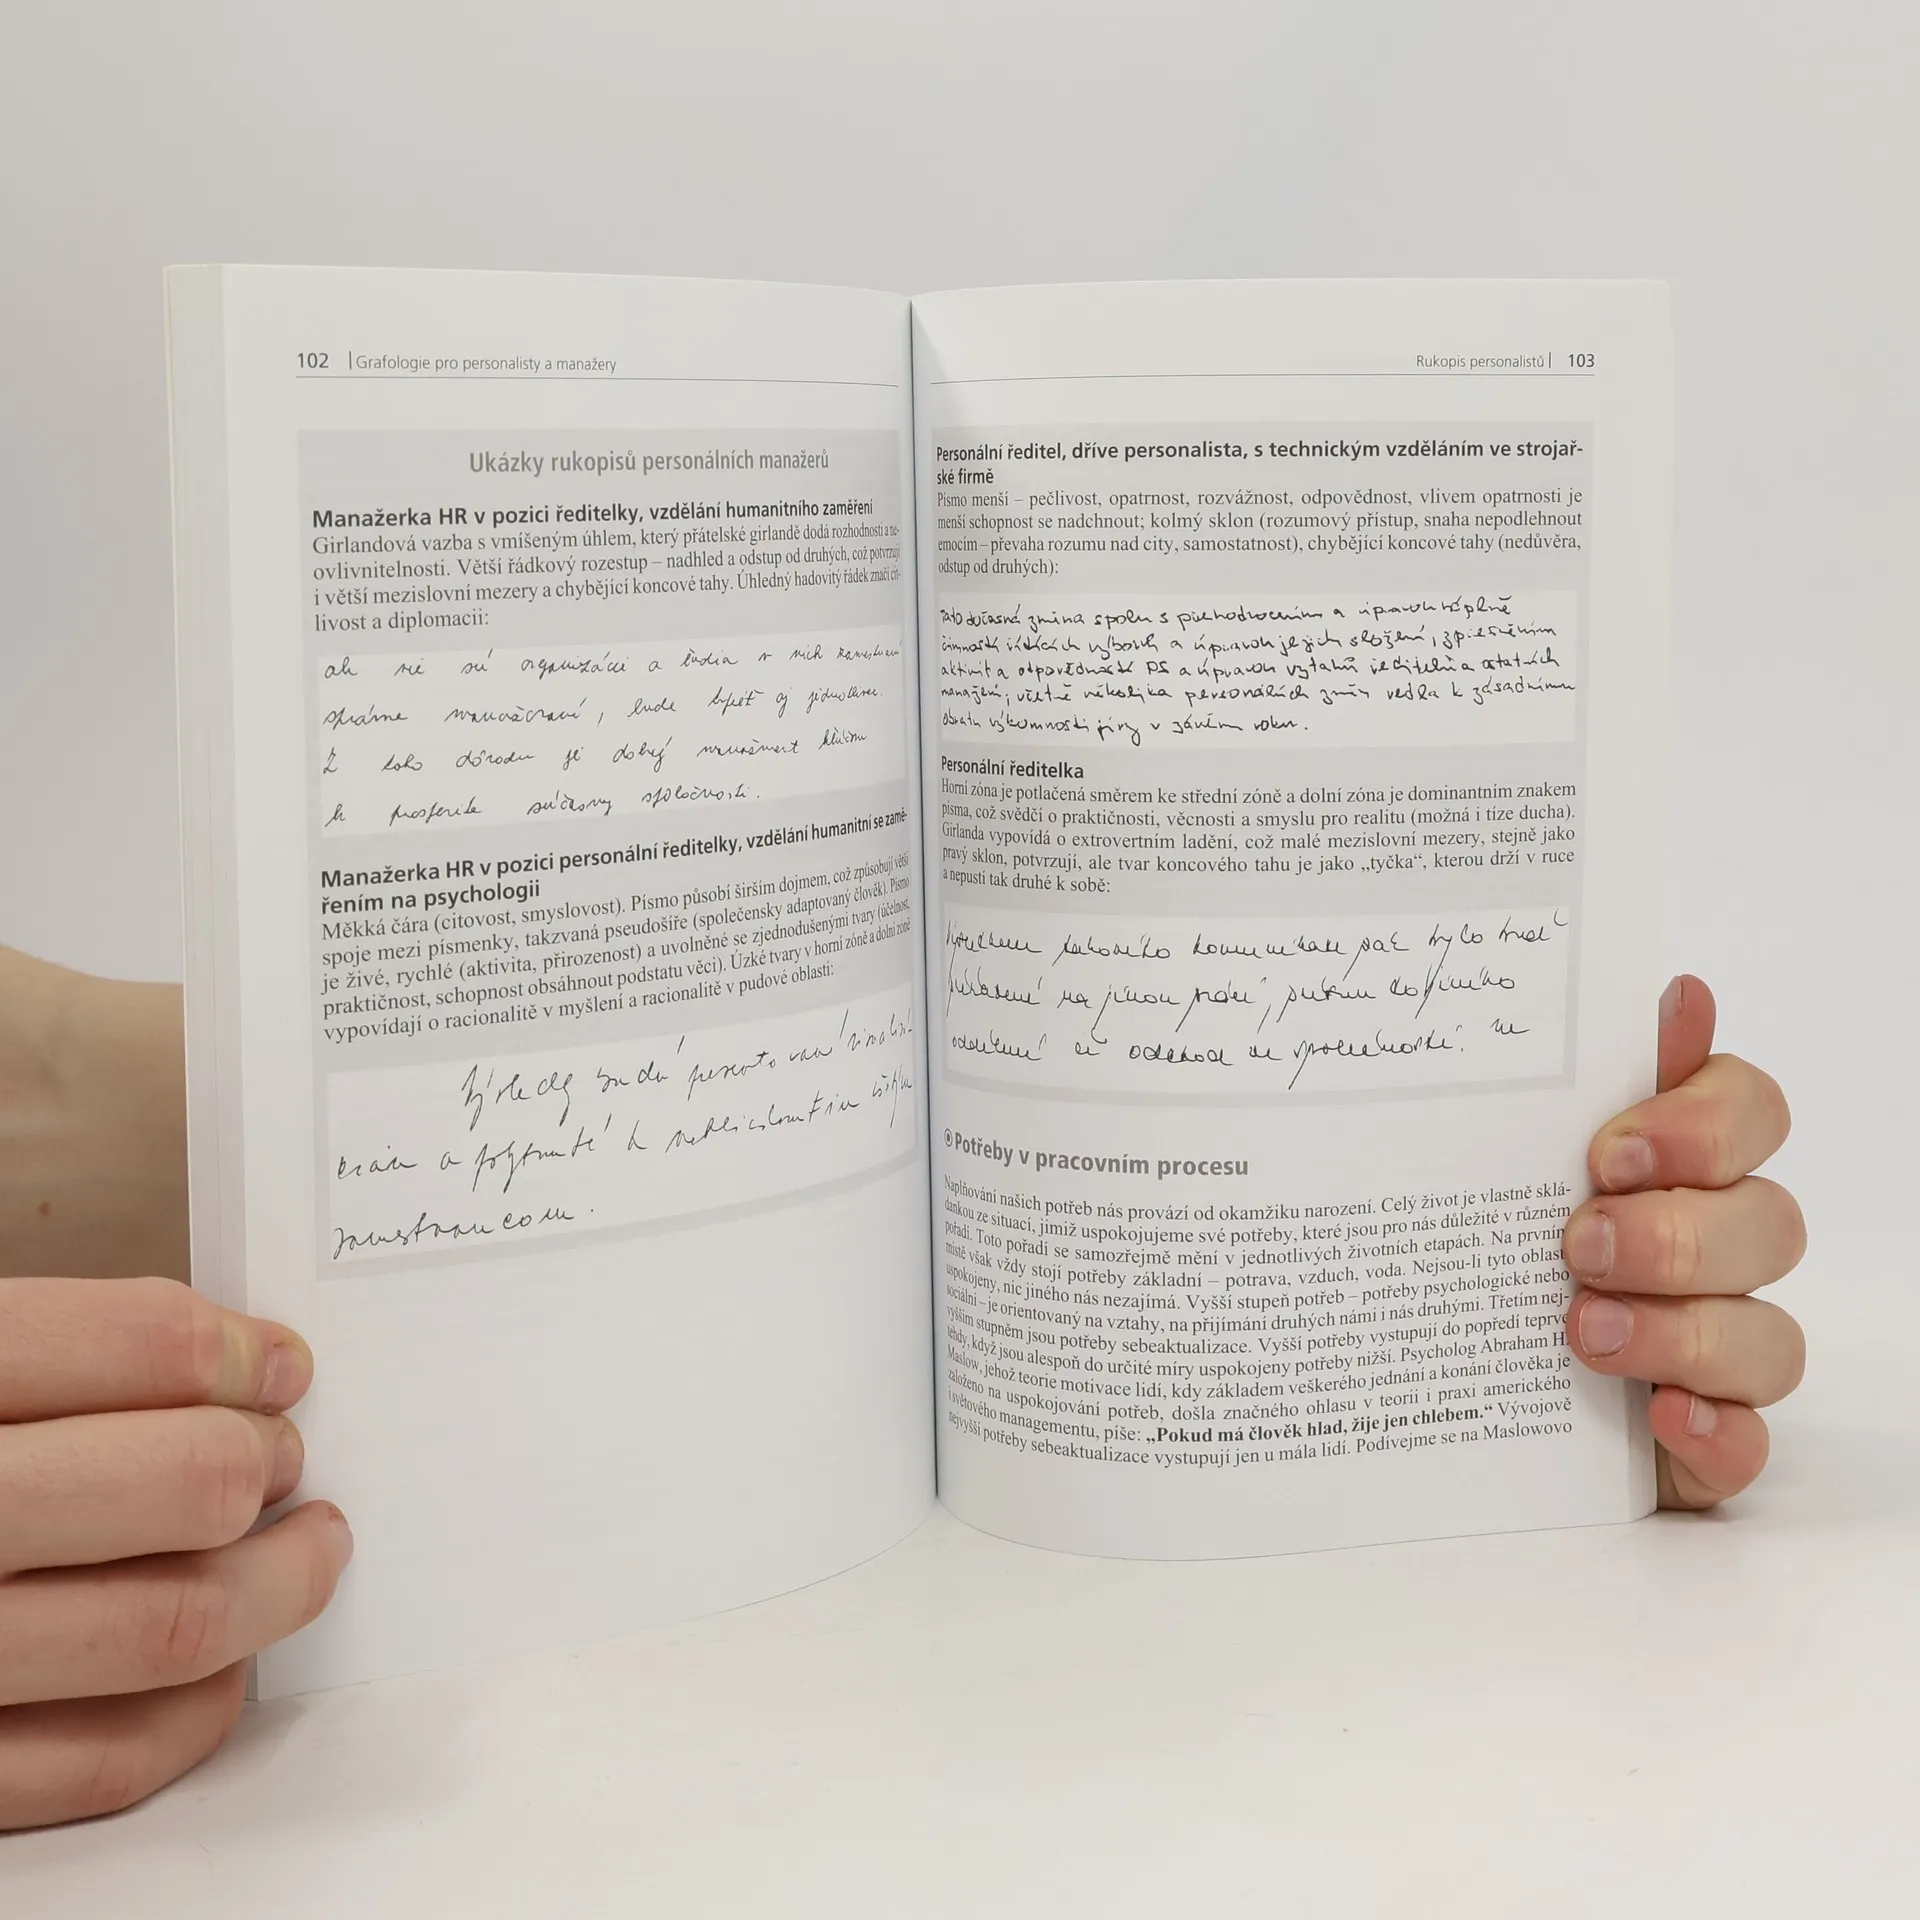 102 | Grafologie pro personalisty a manažery
Ukázky rukopisů personálních manažerů
Manažerka HR v pozici ředitelky, vzdělání humanitního zaměření
Girlandová vazba s vmíšeným úhlem, který přátelské girlandě dodá rozhodnosti a ne-
ovlivnitelnosti. Větší řádkový rozestup – nadhled a odstup od druhých, což potvrzují
i větší mezislovní mezery a chybějící koncové tahy. Úhledný hadovitý řádek značí cit-
livost a diplomacii:
ak nie sú organizácie a ľudia v nich
správne , bude aj
Z toho dôvodu je dobrý
k prosperite súčasnej spoločnosti.
Manažerka HR v pozici personální ředitelky, vzdělání humanitní se zamě-
řením na psychologii
Měkká čára (citovost, smyslovost). Písmo působí širším dojmem, což způsobují větší
spoje mezi písmenky, takzvaná pseudošíře (společensky adaptovaný člověk). Písmo
je živé, rychlé (aktivita, přirozenost) a uvolněné se zjednodušenými tvary (účelnost,
praktičnost, schopnost obsáhnout podstatu věci). Úzké tvary v horní zóně a dolní zóně
vypovídají o racionalitě v myšlení a racionalitě v pudové oblasti:
Výsledky budú
a k
zamestnancom.
Rukopis personalistů | 103
Personální ředitel, dříve personalista, s technickým vzděláním ve strojař-
ské firmě
Písmo menší – pečlivost, opatrnost, rozvážnost, odpovědnost, vlivem opatrnosti je
menší schopnost se nadchnout; kolmý sklon (rozumový přístup, snaha nepodlehnout
emocím – převaha rozumu nad city, samostatnost), chybějící koncové tahy (nedůvěra,
odstup od druhých):
Tato dočasná změna spolu s přehodnocením a úpravou náplně
činnosti řídících výborů a úpravou jejich složení, zpřesněním
aktivit a odpovědností PS a úpravou vztahů ředitelů a ostatních
manažerů, včetně několika personálních změn vedla k zásadnímu
obratu výkonnosti firmy v závěru roku.
Personální ředitelka
Horní zóna je potlačená směrem ke střední zóně a dolní zóna je dominantním znakem
písma, což svědčí o praktičnosti, věcnosti a smyslu pro realitu (možná i tíze ducha).
Girlanda vypovídá o extrovertním ladění, což malé mezislovní mezery, stejně jako
pravý sklon, potvrzují, ale tvar koncového tahu je jako „tyčka“, kterou drží v ruce
a nepustí tak druhé k sobě:
Výsledkem takového pak bylo buď
na jinou práci, do jiného
oddělení či odchod ze společnosti.
Potřeby v pracovním procesu
Naplňování našich potřeb nás provází od okamžiku narození. Celý život je vlastně sklá-
dankou ze situací, jimiž uspokojujeme své potřeby, které jsou pro nás důležité v různém
pořadí. Toto pořadí se samozřejmě mění v jednotlivých životních etapách. Na prvním
místě však vždy stojí potřeby základní – potrava, vzduch, voda. Nejsou-li tyto oblasti
uspokojeny, nic jiného nás nezajímá. Vyšší stupeň potřeb – potřeby psychologické nebo
sociální – je orientovaný na vztahy, na přijímání druhých námi i nás druhými. Třetím nej-
vyšším stupněm jsou potřeby sebeaktualizace. Vyšší potřeby vystupují do popředí teprve
tehdy, když jsou alespoň do určité míry uspokojeny potřeby nižší. Psycholog Abraham H.
Maslow, jehož teorie motivace lidí, kdy základem veškerého jednání a konání člověka je
založeno na uspokojování potřeb, došla značného ohlasu v teorii i praxi amerického
i světového managementu, píše: „Pokud má člověk hlad, žije jen chlebem.“ Vývojově
nejvyšší potřeby sebeaktualizace vystupují jen u mála lidí. Podívejme se na Maslowovo